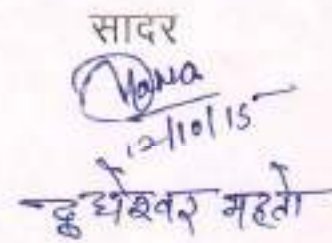 सादर
12/10/15
दुधेश्वर महतो